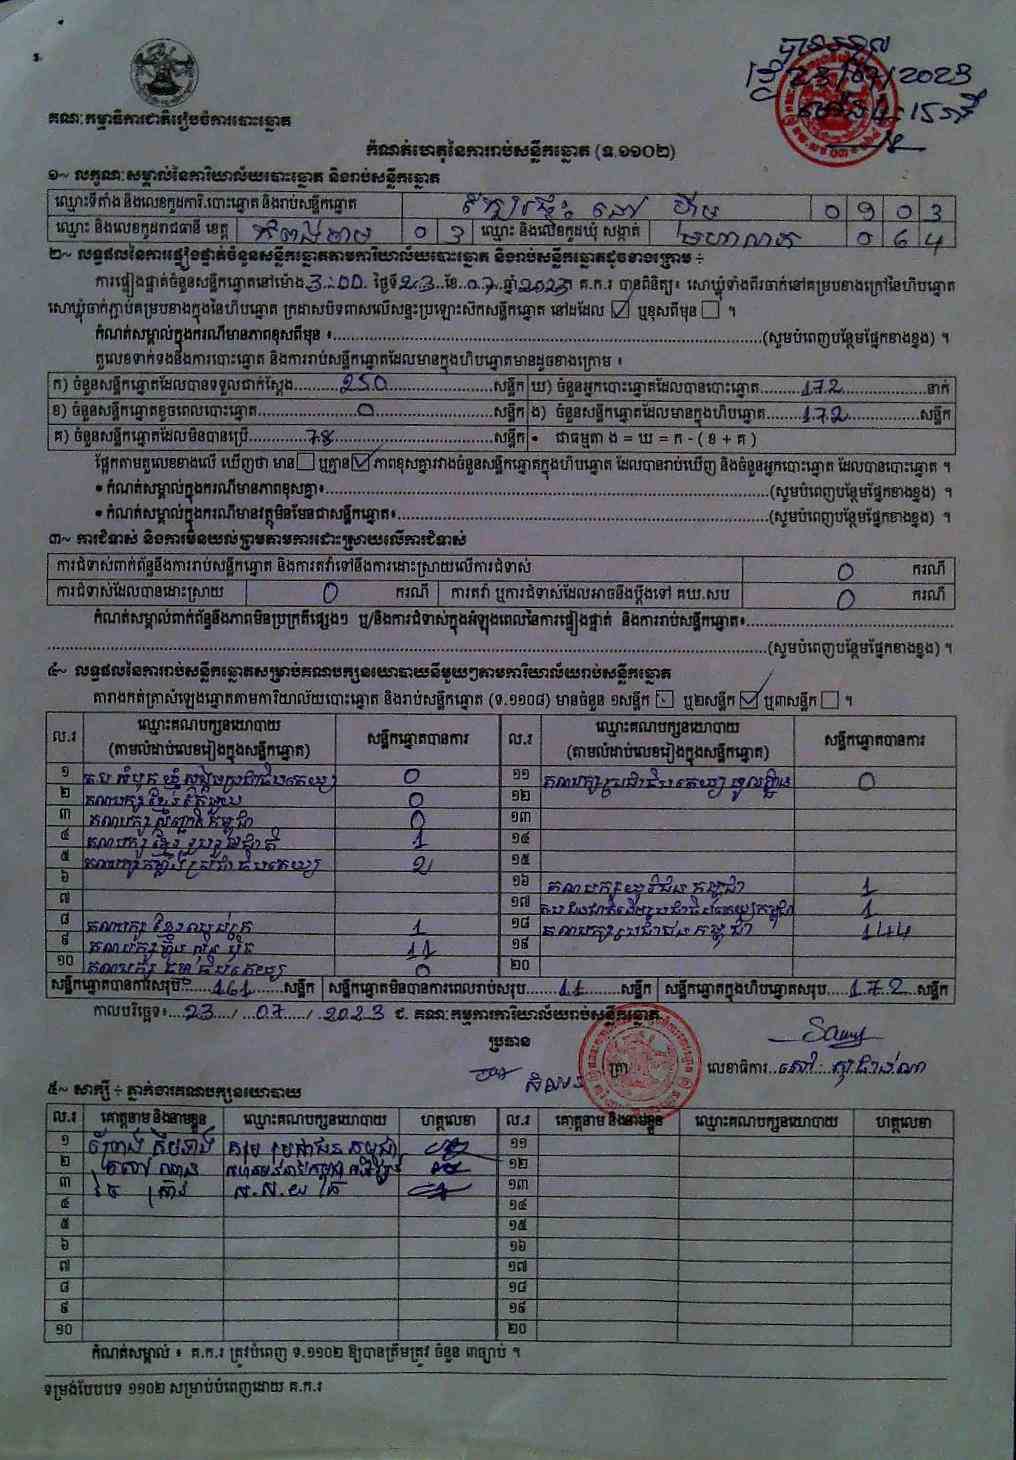 បានទទួល
ថ្ងៃ 23/07/2023
ម៉ោង
គណៈកម្មាធិការជាតិរៀបចំការបោះឆ្នោត
កំណត់ហេតុនៃការរាប់សន្លឹកឆ្នោត (ទ.១១០២)
១~ លក្ខណៈសម្គាល់នៃការិយាល័យបោះឆ្នោត និងរាប់សន្លឹកឆ្នោត
ឈ្មោះទីតាំង និងលេខកូដការិ.បោះឆ្នោត និងរាប់សន្លឹកឆ្នោត 0 9 0 3
ឈ្មោះ និងលេខកូដរាជធានី ខេត្ត កំពង់ចាម 0 3 ឈ្មោះ និងលេខកូដឃុំ សង្កាត់ 0 6 4
២~ លទ្ធផលនៃការផ្ទៀងផ្ទាត់ចំនួនសន្លឹកឆ្នោតតាមការិយាល័យបោះឆ្នោត និងរាប់សន្លឹកឆ្នោតដូចខាងក្រោម ÷
ការផ្ទៀងផ្ទាត់ចំនួនសន្លឹកឆ្នោតនៅម៉ោង 3:00 ថ្ងៃទី 23 ខែ 07 ឆ្នាំ 2023 គ.ក.រ បានពិនិត្យ៖ សោឃ្លុំទាំងពីរចាក់នៅគម្របខាងក្រៅនៃហិបឆ្នោត
សោឃ្លុំចាក់ភ្ជាប់គម្របខាងក្នុងនៃហិបឆ្នោត ក្រដាសបិទពាសលើសន្ទះប្រឡោះស៊កសន្លឹកឆ្នោត នៅដដែល ☑ ឬខុសពីមុន ☐ ។
កំណត់សម្គាល់ក្នុងករណីមានភាពខុសពីមុន ៖ (សូមបំពេញបន្ថែមផ្នែកខាងខ្នង) ។
តួលេខទាក់ទងនឹងការបោះឆ្នោត និងការរាប់សន្លឹកឆ្នោតដែលមានក្នុងហិបឆ្នោតមានដូចខាងក្រោម ៖
ក) ចំនួនសន្លឹកឆ្នោតដែលបានទទួលជាក់ស្តែង 250 សន្លឹក ឃ) ចំនួនអ្នកបោះឆ្នោតដែលបានបោះឆ្នោត 172 នាក់
ខ) ចំនួនសន្លឹកឆ្នោតខូចពេលបោះឆ្នោត 0 សន្លឹក ង) ចំនួនសន្លឹកឆ្នោតដែលមានក្នុងហិបឆ្នោត 172 សន្លឹក
គ) ចំនួនសន្លឹកឆ្នោតដែលមិនបានប្រើ 78 សន្លឹក • ជាធម្មតា ង = ឃ = ក - ( ខ + គ )
ផ្អែកតាមតួលេខខាងលើ ឃើញថា មាន ☐ ឬគ្មាន ☑ ភាពខុសគ្នារវាងចំនួនសន្លឹកឆ្នោតក្នុងហិបឆ្នោត ដែលបានរាប់ឃើញ និងចំនួនអ្នកបោះឆ្នោត ដែលបានបោះឆ្នោត ។
• កំណត់សម្គាល់ក្នុងករណីមានភាពខុសគ្នា៖ (សូមបំពេញបន្ថែមផ្នែកខាងខ្នង) ។
• កំណត់សម្គាល់ក្នុងករណីមានវត្ថុមិនមែនជាសន្លឹកឆ្នោត៖ (សូមបំពេញបន្ថែមផ្នែកខាងខ្នង) ។
៣~ ការជំទាស់ និងការមិនយល់ព្រមតាមការដោះស្រាយលើការជំទាស់
ការជំទាស់ពាក់ព័ន្ធនឹងការរាប់សន្លឹកឆ្នោត និងការតវ៉ាទៅនឹងការដោះស្រាយលើការជំទាស់ 0 ករណី
ការជំទាស់ដែលបានដោះស្រាយ 0 ករណី ការតវ៉ា ឬការជំទាស់ដែលអាចនឹងប្តឹងទៅ គឃ.សប 0 ករណី
កំណត់សម្គាល់ពាក់ព័ន្ធនឹងភាពមិនប្រក្រតីផ្សេងៗ ឬ/និងការជំទាស់ក្នុងអំឡុងពេលនៃការផ្ទៀងផ្ទាត់ និងការរាប់សន្លឹកឆ្នោត៖
(សូមបំពេញបន្ថែមផ្នែកខាងខ្នង) ។
៤~ លទ្ធផលនៃការរាប់សន្លឹកឆ្នោតសម្រាប់គណបក្សនយោបាយនីមួយៗតាមការិយាល័យរាប់សន្លឹកឆ្នោត
តារាងកត់ត្រាសំឡេងឆ្នោតតាមការិយាល័យបោះឆ្នោត និងរាប់សន្លឹកឆ្នោត (ទ.១១០៨) មានចំនួន ១សន្លឹក ☐ ឬ២សន្លឹក ☑ ឬ៣សន្លឹក ☐ ។
ល.រ ឈ្មោះគណបក្សនយោបាយ (តាមលំដាប់លេខរៀងក្នុងសន្លឹកឆ្នោត) សន្លឹកឆ្នោតបានការ ល.រ ឈ្មោះគណបក្សនយោបាយ (តាមលំដាប់លេខរៀងក្នុងសន្លឹកឆ្នោត) សន្លឹកឆ្នោតបានការ
១ គប សំបុកឃ្មុំសង្គមប្រជាធិបតេយ្យ 0 ១១ 0
២ គណបក្សខ្មែរតែមួយ 0 ១២
៣ 0 ១៣
៤ គណបក្សខ្មែររួបរួមជាតិ 1 ១៤
៥ 2 ១៥
៦ ១៦ គណបក្សយុវជនកម្ពុជា 1
៧ ១៧ 1
៨ 1 ១៨ គណបក្សប្រជាជនកម្ពុជា 144
៩ គណបក្សហ្វ៊ុនស៊ិនប៉ិច 11 ១៩
១០ 0 ២០
សន្លឹកឆ្នោតបានការសរុប 161 សន្លឹក សន្លឹកឆ្នោតមិនបានការពេលរាប់សរុប 11 សន្លឹក សន្លឹកឆ្នោតក្នុងហិបឆ្នោតសរុប 172 សន្លឹក
កាលបរិច្ឆេទ៖ 23 / 07 / 2023 ជ. គណៈកម្មការការិយាល័យរាប់សន្លឹកឆ្នោត
ប្រធាន
(ត្រា) លេខាធិការ
៥~ សាក្សី ÷ ភ្នាក់ងារគណបក្សនយោបាយ
ល.រ គោត្តនាម និងនាមខ្លួន ឈ្មោះគណបក្សនយោបាយ ហត្ថលេខា ល.រ គោត្តនាម និងនាមខ្លួន ឈ្មោះគណបក្សនយោបាយ ហត្ថលេខា
១ គបប្រជាជនកម្ពុជា ១១
២ ១២
៣ ស.ស.យ.ក ១៣
៤ ១៤
៥ ១៥
៦ ១៦
៧ ១៧
៨ ១៨
៩ ១៩
១០ ២០
កំណត់សម្គាល់ ៖ គ.ក.រ ត្រូវបំពេញ ទ.១១០២ ឱ្យបានត្រឹមត្រូវ ចំនួន ៣ច្បាប់ ។
ទម្រង់បែបបទ ១១០២ សម្រាប់បំពេញដោយ គ.ក.រ